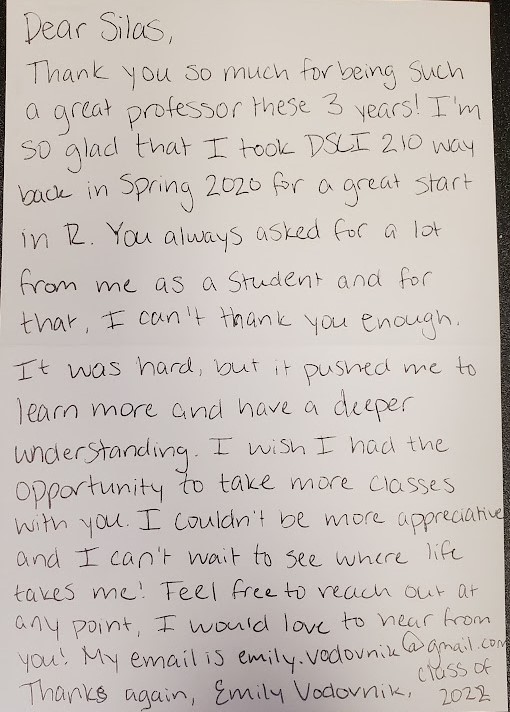 Dear Silas,
Thank you so much for being such
a great professor these 3 years! I'm
so glad that I took DSCI 210 way
back in Spring 2020 for a great start
in R. You always asked for a lot
from me as a student and for
that, I can't thank you enough.
It was hard, but it pushed me to
learn more and have a deeper
understanding. I wish I had the
opportunity to take more classes
with you. I couldn't be more appreciative
and I can't wait to see where life
takes me! Feel free to reach out at
any point, I would love to hear from
you! My email is emily.vodovnik@gmail.com
Thanks again, Emily Vodovnik, class of
2022